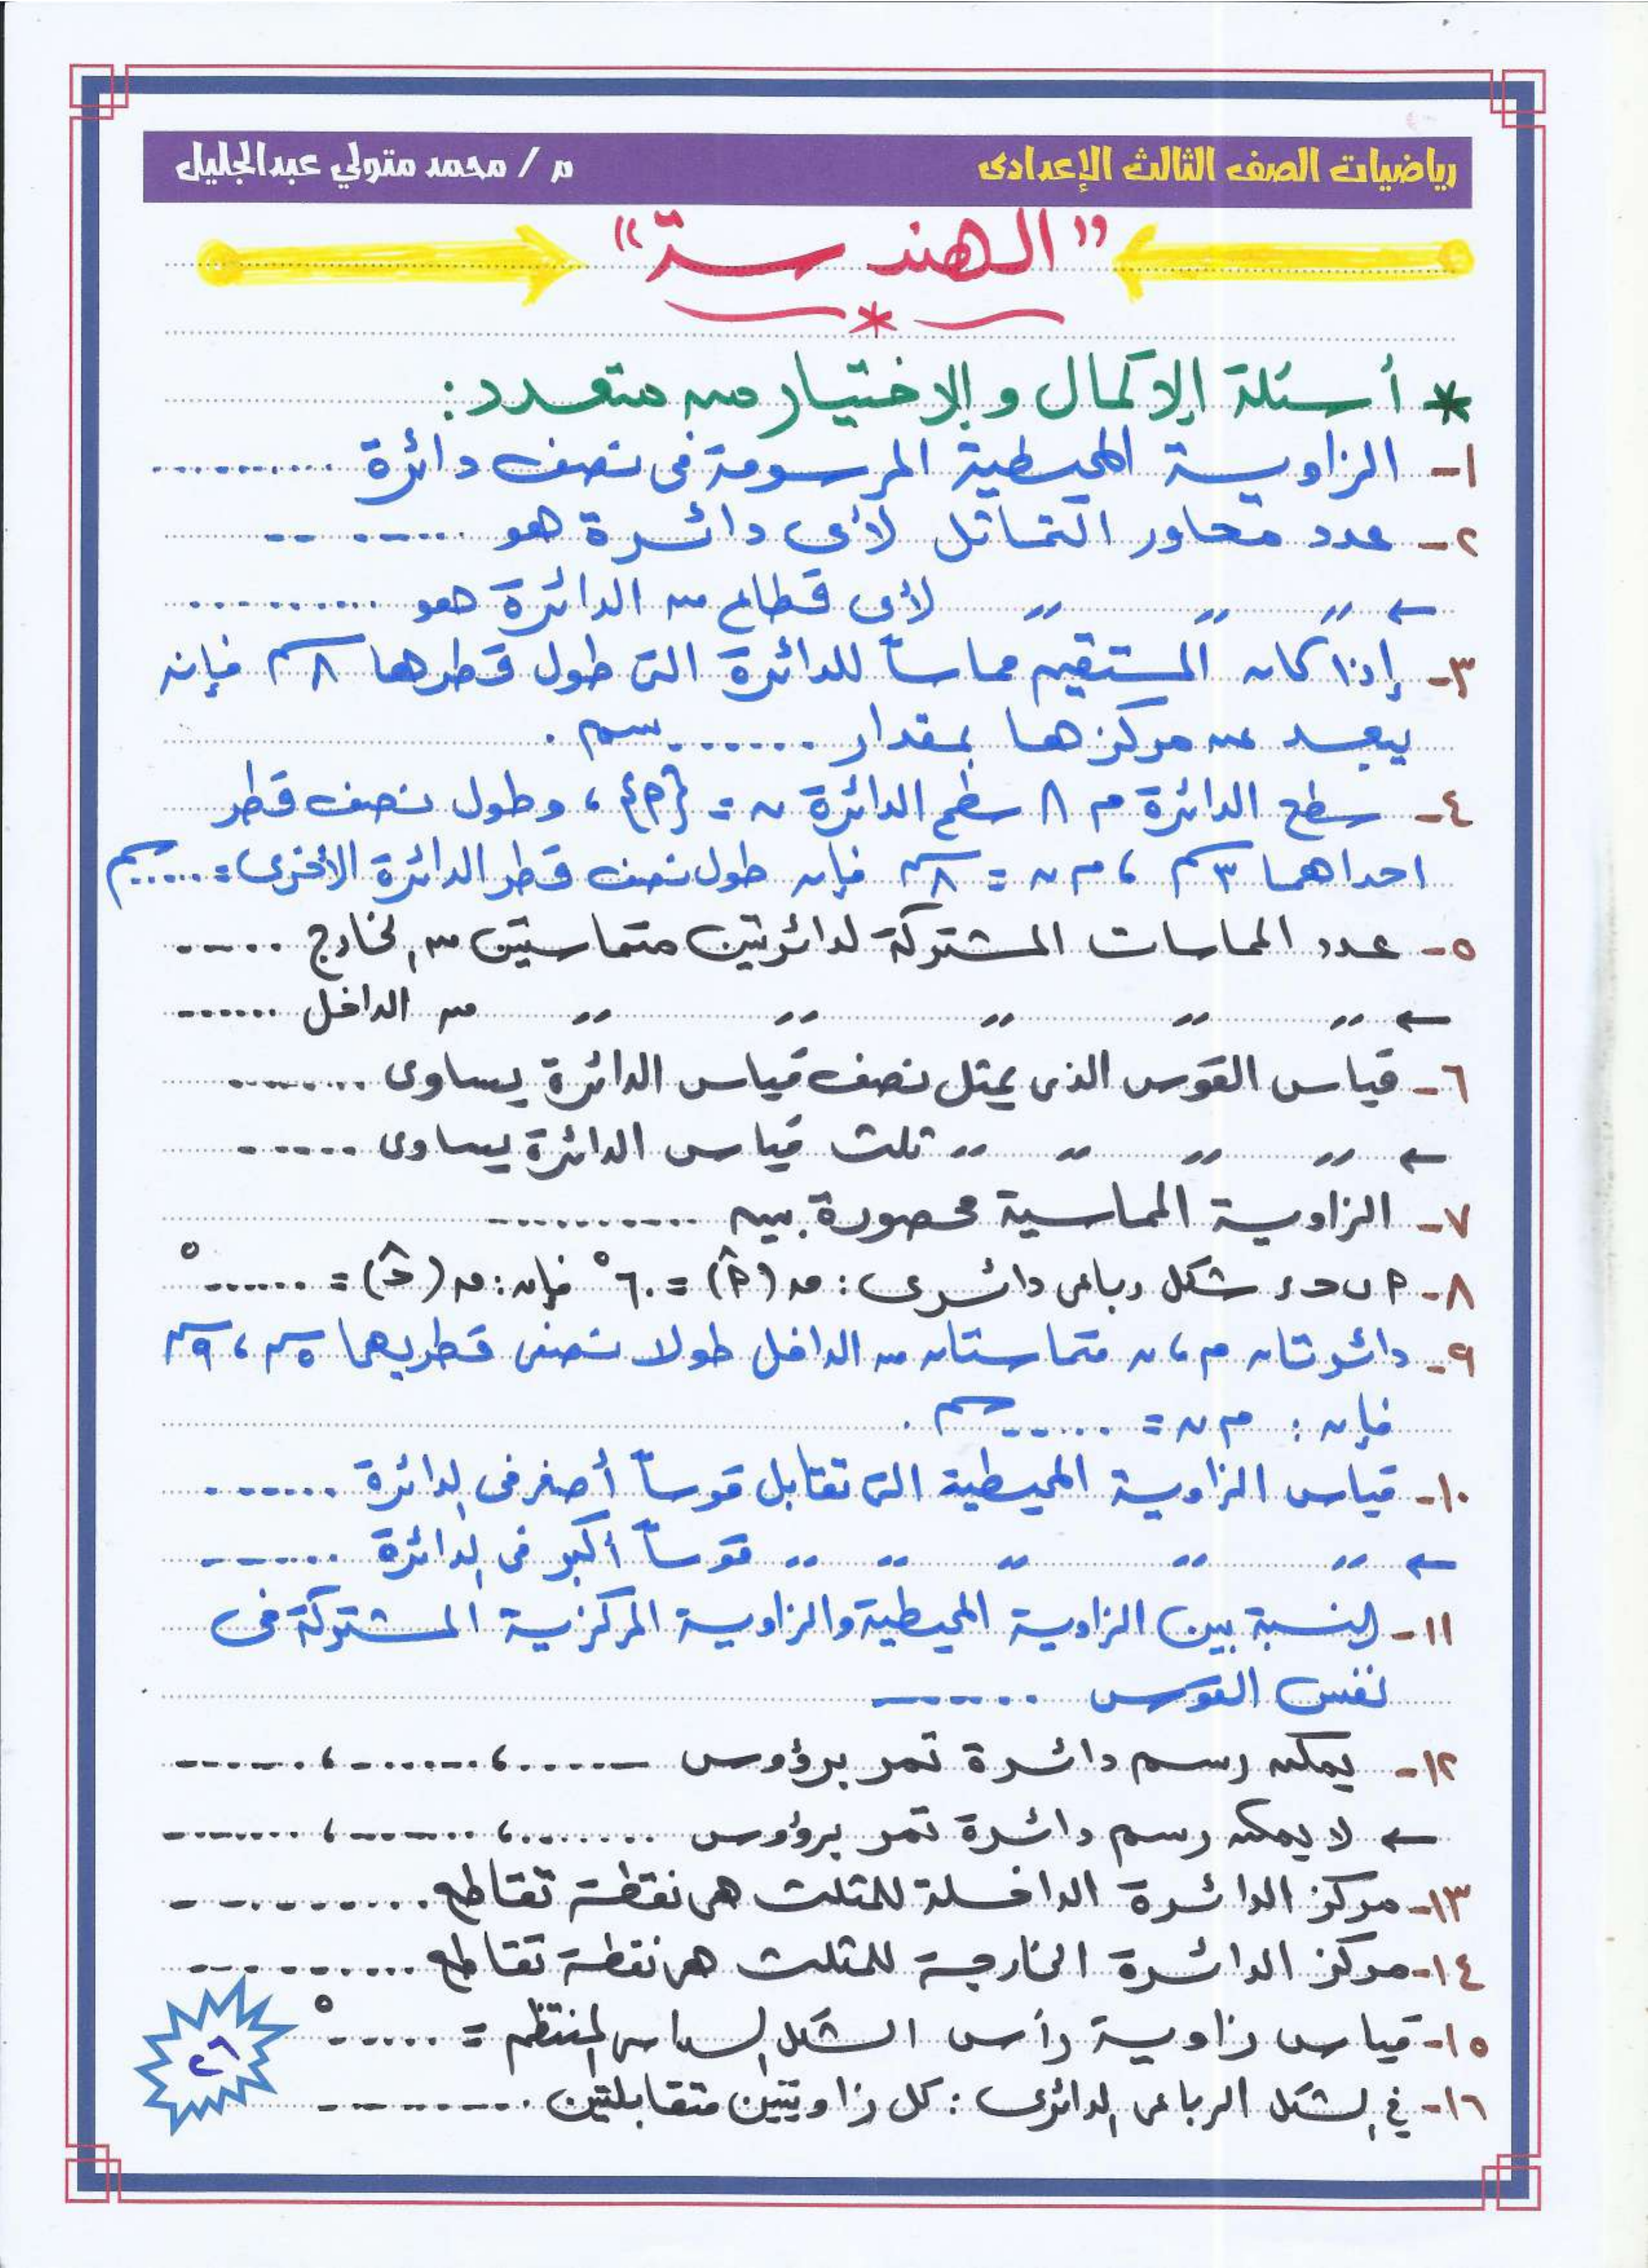 رياضيات الصف الثالث الإعدادى
م / محمد متولي عبدالجليل
"الهندسة"
* أسئلة الإكمال والإختيار من متعدد:
١- الزاوية المحيطية المرسومة فى نصف دائرة ..........
٢- عدد محاور التماثل لأى دائرة هو ..........
← 〃 〃 〃 لأى قطاع من الدائرة هو ..........
٣- إذا كان المستقيم مماساً للدائرة التى طول قطرها ٨ سم فإنه
يبعد عن مركزها بمقدار ....... سم .
٤- سطح الدائرة م ∩ سطح الدائرة ن = {م} ، وطول نصف قطر
احداهما ٣ سم ، م ن = ٨ سم فإن طول نصف قطر الدائرة الأخرى = ..... سم
٥- عدد المماسات المشتركة لدائرتين متماستين من الخارج .....
← 〃 〃 〃 〃 〃 من الداخل .......
٦- قياس القوس الذى يمثل نصف قياس الدائرة يساوى .......
← 〃 〃 〃 〃 ثلث قياس الدائرة يساوى .......
٧- الزاوية المماسية محصورة بين ..........
٨- م ب ح ء شكل رباعى دائرى : ق (م̂) = ٦٠° فإن : ق (ح̂) = ......°
٩- دائرتان م ، ن متماستان من الداخل طولا نصفى قطريهما ٥ سم ، ٩ سم
فإن : م ن = ...... سم .
١٠- قياس الزاوية المحيطية التى تقابل قوساً أصغر فى الدائرة .......
← 〃 〃 〃 〃 〃 قوساً أكبر فى الدائرة .......
١١- النسبة بين الزاوية المحيطية والزاوية المركزية المشتركة فى
نفس القوس .......
١٢- يمكن رسم دائرة تمر برؤوس ....... ، ....... ، .......
← لا يمكن رسم دائرة تمر برؤوس ....... ، ....... ، .......
١٣- مركز الدائرة الداخلة للمثلث هى نقطة تقاطع ..........
١٤- مركز الدائرة الخارجة للمثلث هى نقطة تقاطع ..........
١٥- قياس زاوية رأس الشكل السداسى المنتظم = ......°
١٦- فى الشكل الرباعى الدائرى : كل زاويتين متقابلتين ..........
٢٦